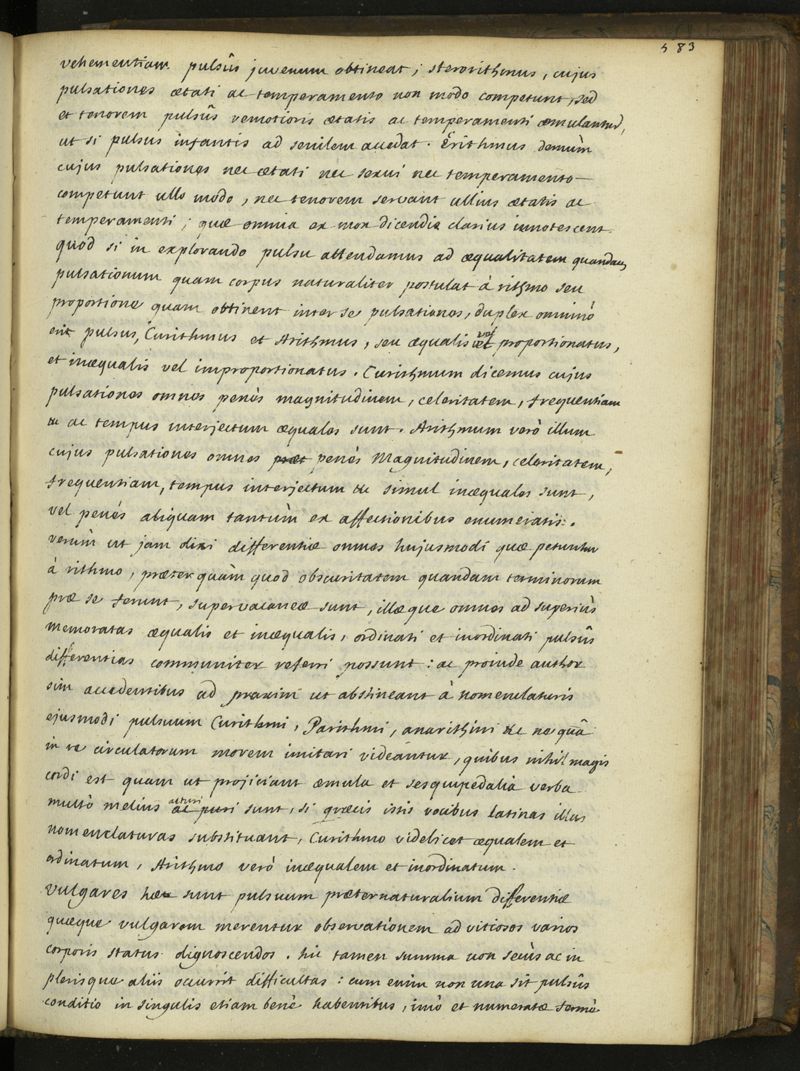 583
vehementiam pulsûs juvenum obtineat; sterorithmus, cujus
pulsationes ætati ac temperamento non modo competunt, sed
et tenorem pulsûs remotioris ætatis ac temperamenti æmulantur,
ut si pulsus infantis ad senilem accedat. Erithmus demùm
cujus pulsationes nec ætati nec sexui nec temperamento
competunt ullo modo, nec tenorem servant ullius ætatis ac
temperamenti; quæ omnia ex mox dicendis clarius innotescent.
quòd si in explorando pulsu attendamus ad æqualitatem quandam
pulsationum quam corpus naturaliter postulat à rithmo seu
proportione quam obtinent inter se pulsationes, duplex omninò
erit pulsus, Eurithmus et Arithmus, seu æqualis vel proportionatus,
et inæqualis vel improportionatus. Eurithmum dicemus cujus
pulsationes omnes penès magnitudinem, celeritatem, frequentiam
ac tempus interjectum æquales sunt. Arithmum verò illum
cujus pulsationes omnes penès Magnitudinem, celeritatem,
frequentiam, tempus interjectum &c simul inæquales sunt,
vel penès aliquam tantùm ex affectionibus enumeratis.
verùm ut jam dixi differentiæ omnes hujusmodi quæ petuntur
à rithmo, præterquàm quod obscuritatem quandam terminorum
præ se ferunt, supervacaneæ sunt, illæque omnes ad superiùs
memoratas æqualis et inæqualis, ordinati et inordinati pulsûs
differentias communiter referri possunt: ac proinde author
sim accedentibus ad praxim ut abstineant à nomenclaturis
ejusmodi pulsuum Eurithmi, Parithmi, anarithmi &c ne quâ
in re circulatorum morem imitari videantur, quibus nihil magis
cordi est quam ut projiciant æmula et sesquipedalia verba
multò melius acturi sunt, si græcis istis vocibus latinas illas
nomenclaturas substituant, Eurithmo videlicet æqualem et
ordinatum, Arithmo verò inæqualem et inordinatum.
vulgares hæ sunt pulsuum præternaturalium differentiæ
quæque vulgarem merentur observationem ad vitiosos varios
corporis status dignoscendos. hic tamen summa non seciùs ac in
plerisque aliis occurrit difficultas: cum enim non una sit pulsûs
conditio in singulis etiam benè habentibus, imò et numeratæ fermè